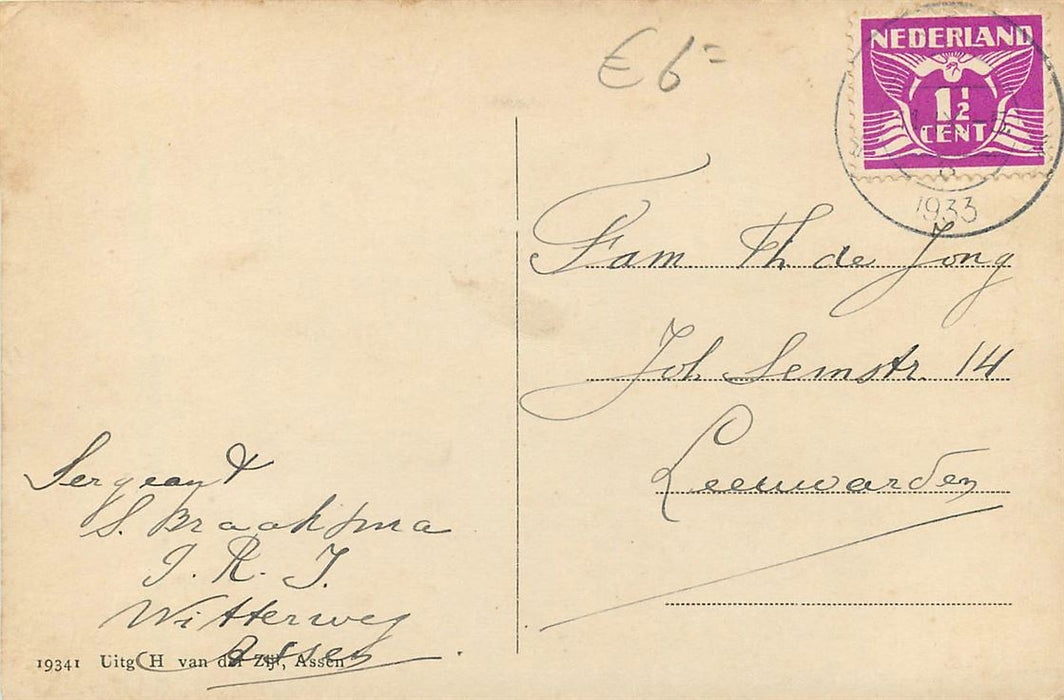 € 6=
NEDERLAND
1½
CENT
1933
Fam. Th de Jong
Joh. Semstr. 14
Leeuwarden
Sergeant
S. Braaksma
I. R. I.
Witterweg
Assen
19341 Uitg. H van der Zijl, Assen